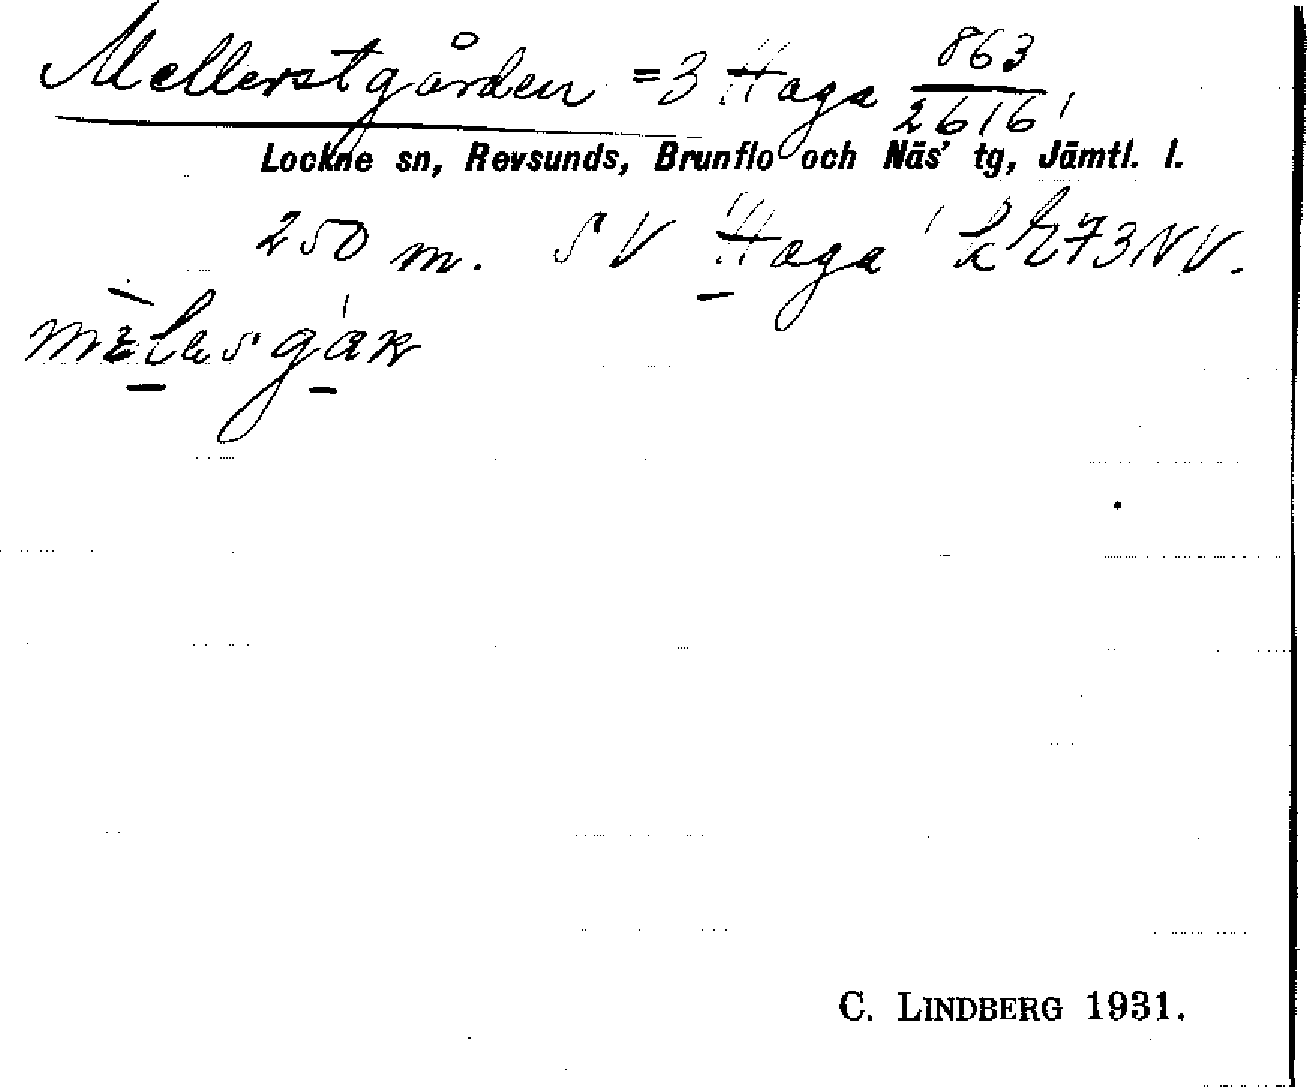 Mellerstgården = 3 Haga 863/2616
Lockne sn, Revsunds, Brunflo och Näs' tg, Jämtl. l.
250 m. SV Haga 73 NV.
C. LINDBERG 1931.